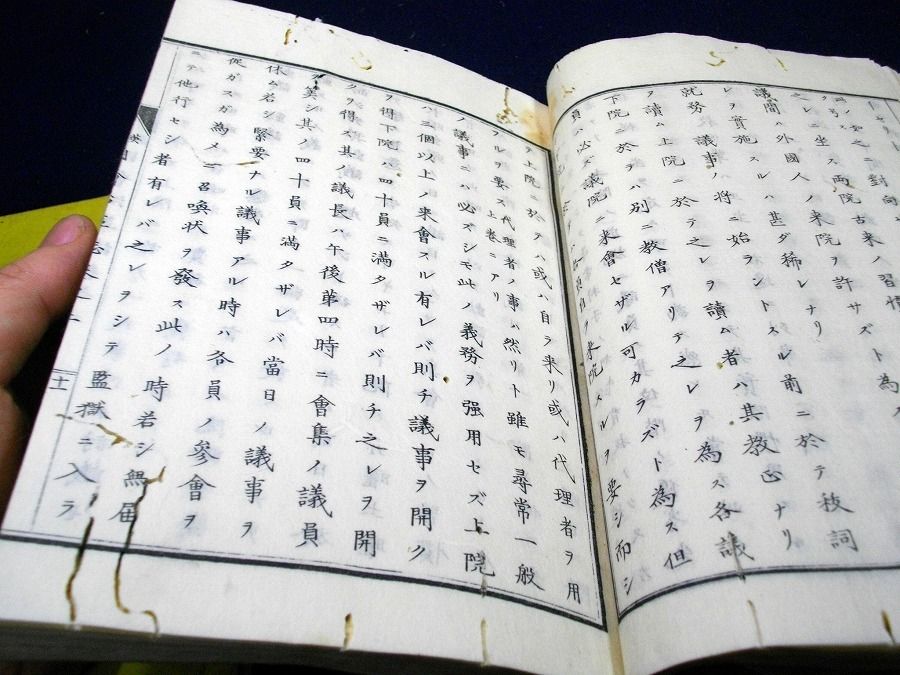 トセリ
對向ス
両院古来ノ習慣
外國人ノ来院ヲ許サズト為
レヲ實施スルハ甚ダ稀レナリ
就務議事ノ将ニ始ラントスル前ニ於テ祓詞
ヲ讀ム上院ニ於テ之レヲ讀ム者ハ其教正ナリ
下院ニ於テハ別ニ教僧アリテ之レヲ為ス各議
員ハ必ズ議院ニ来會セザル可カラズト為ス但
来院スルヲ要シ而シ
ヲ上院ニ於テハ或ハ自ラ来リ或ハ代理者ヲ用
ヲルヲ要ス代理者ノ事ハ上巻ニアリ然リト雖モ尋常一般
ノ議事ニハ必ズシモ此ノ義務ヲ强用セズ上院
ハ三個以上ノ来會スル有レバ則チ議事ヲ開ク
ヲ得下院ハ四十員ニ満タザレバ則チ之レヲ開
クヲ得ス其ノ議長ハ午後第四時ニ會集ノ議員
ヲ筭シ其ノ四十員ニ満タザレバ當日ノ議事ヲ
休ム若シ緊要ナル議事アル時ハ各員ノ參會ヲ
促ガスガ為メニ召喚状ヲ發ス此ノ時若シ無届
ニテ他行セシ者有レバ之レヲシテ監獄ニ入ラ
十一